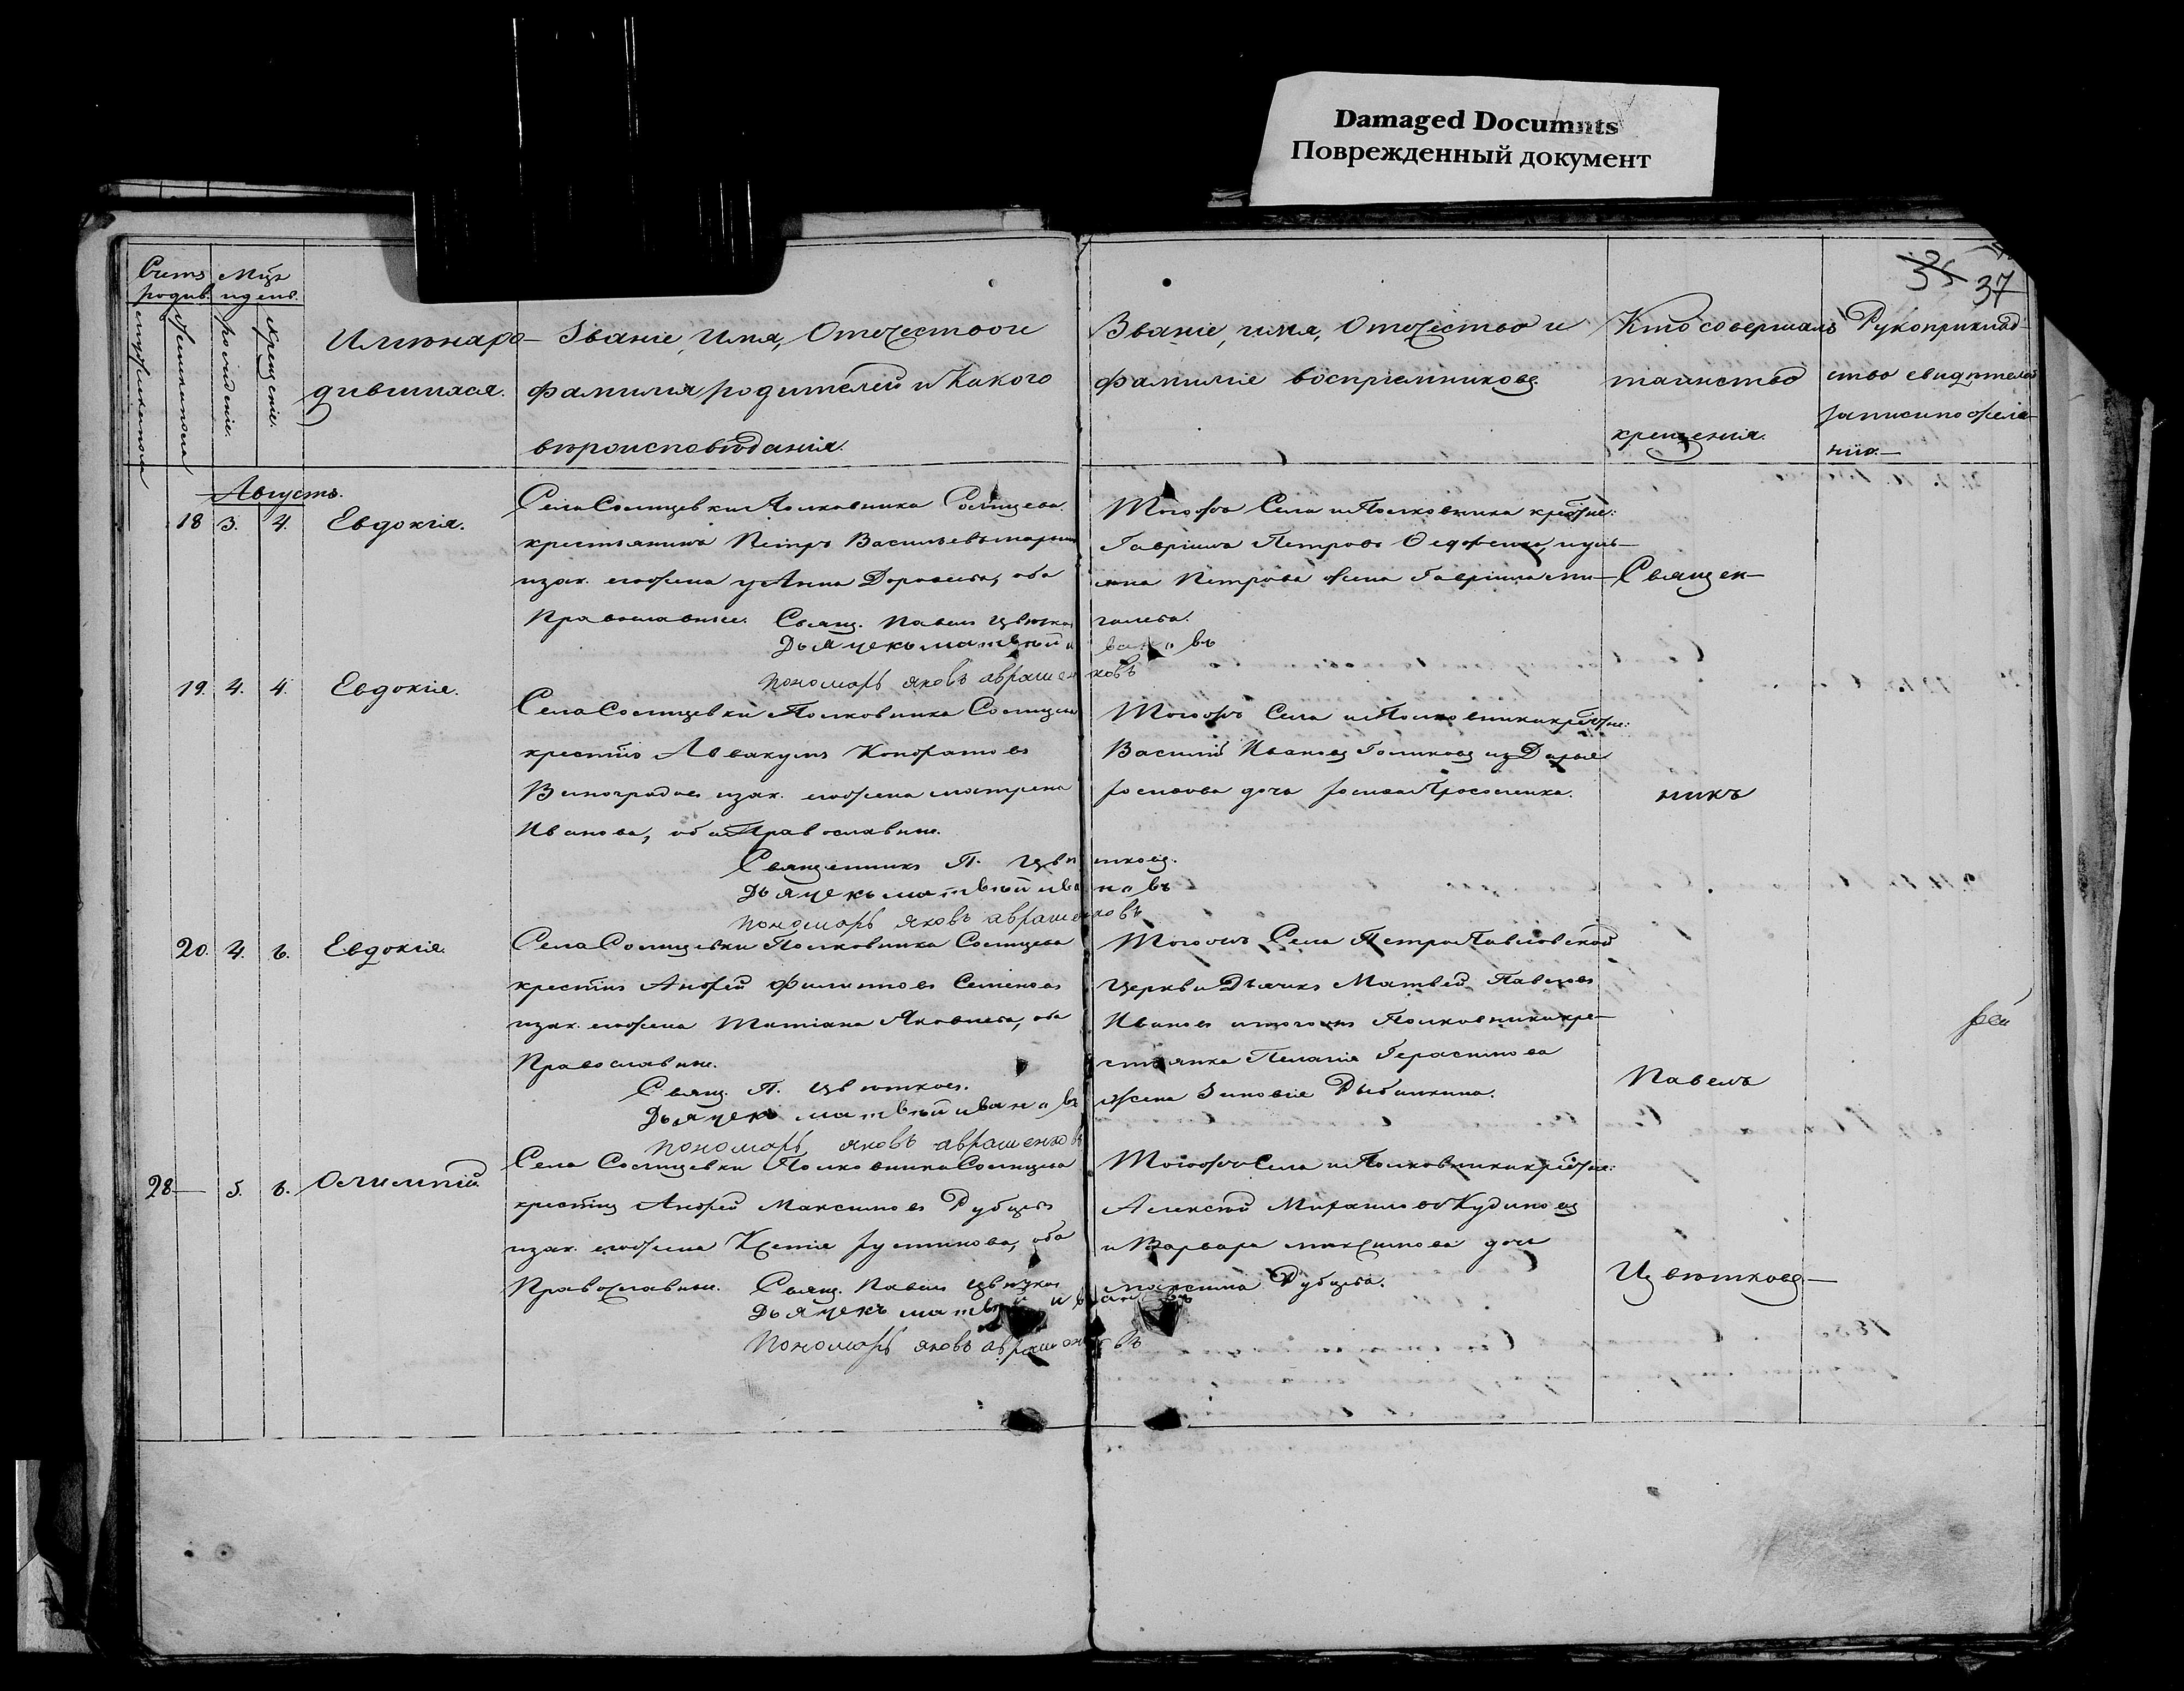 Damaged Documnts
Поврежденный документ
35 37
Счетъ родив.
Мцъ и день.
мужеска пола
женска пола
рождение.
крещение.
Имя наро-
дившихся.
Званіе, Имя, Отечество и
фамилия родителей и Какого
вероисповеданія.
Званіе, имя, Отечество и
фамилие восприемниковъ
Кто совершалъ
таинство
крещения.
Рукоприклад-
ство свидетелей
записи по жела-
нию.
Августъ.
18 3. 4. Евдокія.
Села Солнцевки Полковника Солнцева
крестьянинъ Петръ Васильевъ
и зак. его жена Анна, оба
Православные. Свящ. Павелъ Цветков
Дьячекъ матвѣй ивановъ
Пономарь яковъ аврашенковъ
Того жъ Села и Полковника крестьяне:
Гавриилъ Петровъ
Петрова жена Гавриила
Священ-
19. 4. 4. Евдокія.
Села Солнцевки Полковника Солнцева
крестнъ Аввакумъ Кондратовъ
Виноградовъ и зак. его жена матрена
Иванова, оба Православные.
Священникъ П. Цветковъ.
Дьячекъ матвѣй ивановъ
Пономарь яковъ аврашенковъ
Того жъ Села и Полковника крестьяне:
Василий Ивановъ Голиковъ и Дарья
дочь
никъ
20. 4. 6. Евдокія.
Села Солнцевки Полковника Солнцева
крестнъ Андрей Филиповъ Семеновъ
и зак. его жена Татіана Яковлева, оба
Православные.
Свящ. П. Цветковъ.
Дьячекъ матвѣй ивановъ
Пономарь яковъ аврашенковъ
Того жъ Села Петропавловской
Церкви Дьячекъ Матвей Павловъ
Ивановъ и того жъ Полковника кре-
стьянка Пелагия Герасимова
жена Зиновие
Павелъ
28 5. 6. Олимпій.
Села Солнцевки Полковника Солнцева
крестнъ Андрей Максимовъ Рубцовъ
и зак. его жена Ксения Устинова, оба
Православные. Свящ. Павелъ Цветков
Дьячекъ матвѣй ивановъ
Пономарь яковъ аврашенковъ
Того жъ Села и Полковника крестьяне:
Алексей Михаиловъ Кудиновъ
и Варвара максимова дочь
максима Рубцова.
Цветковъ